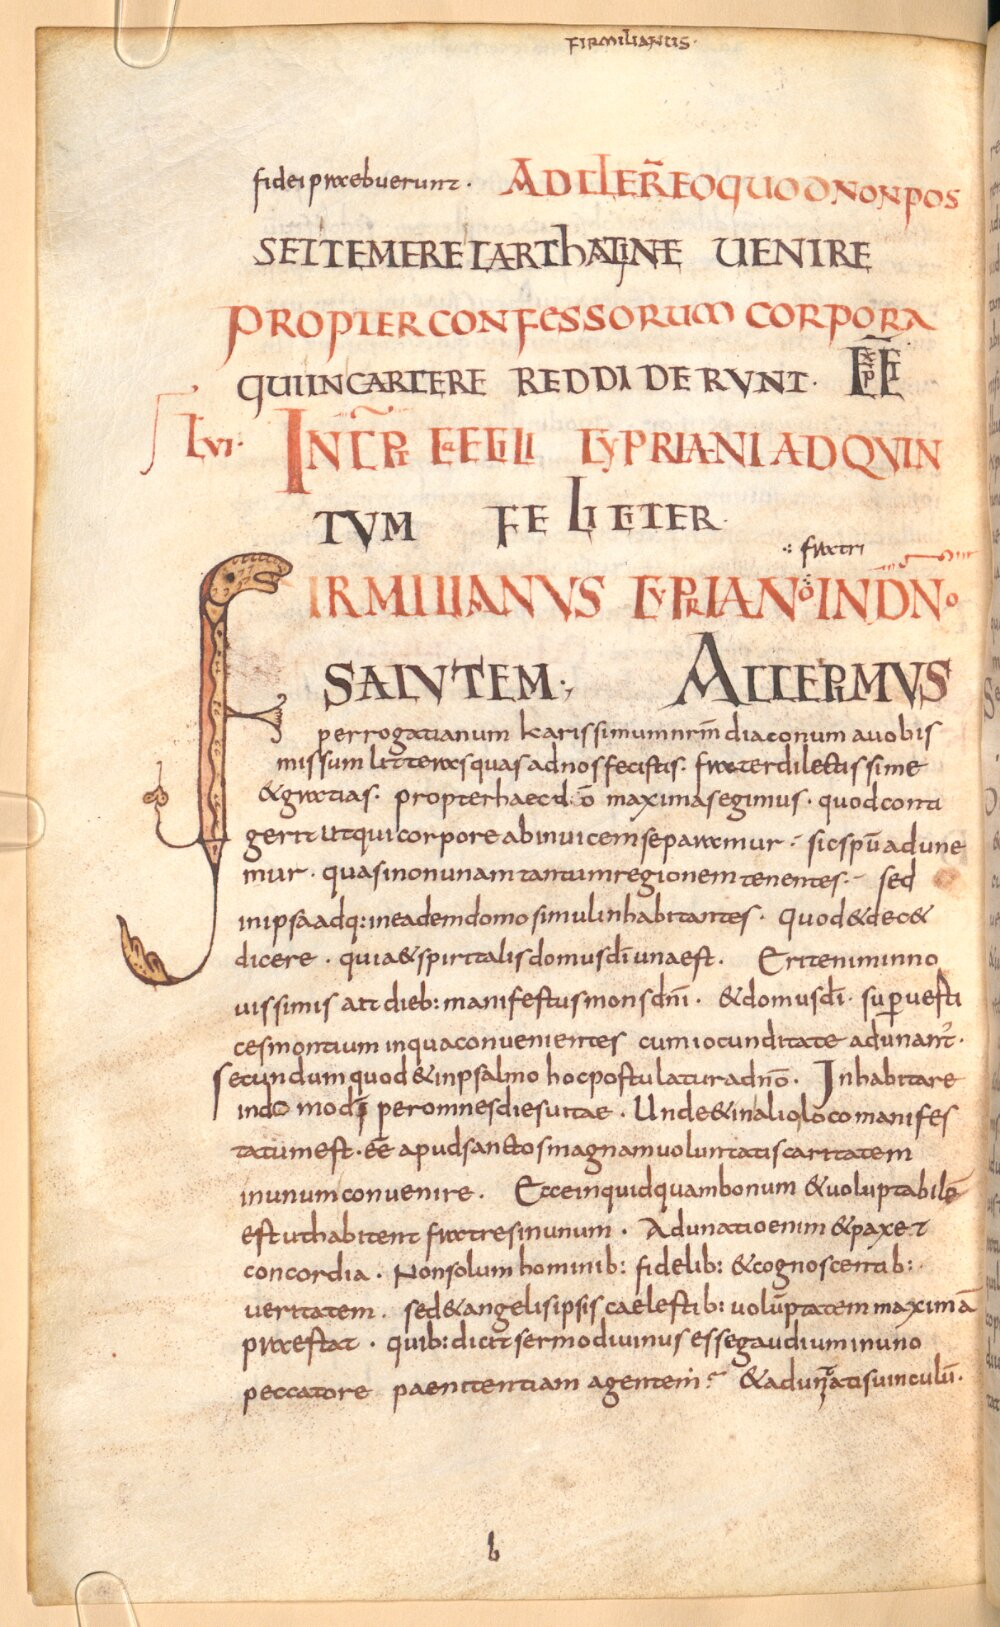 FIRMILIANUS·
fidei praebuerunt · AD CLER̄ EO QUOD NON POS
SET TEMERE CARTHAGINAE UENIRE
PROPTER CONFESSORUM CORPORA
QUI IN CARCERE REDDIDERUNT · EXP̄
LVI· INCP̄ CYPRIANI AD QVIN
TVM FELICITER·
fratri
FIRMILIANVS CYPRIANO IN DN̄O
SALVTEM·, ACCEPIMVS
per rogatianum karissimum nrm̄ diaconum a uobis
missum litteras quas ad nos fecistis· frater dilectissime
& gratias· propter haec dō maximas egimus · quod conti
gerit ut qui corpore ab inuicem separamur · sic spū adune
mur · quasi non unam tantum regionem tenentes · sed
in ipsa adq: in eadem domo simul inhabitantes · Quod & dec&
dicere · quia & spiritalis domus dī una est. Erit enim in no
uissimis ait dieb: manifestus mons dnī · & domus dī · super uesti
ces montium in qua conuenientes cum iocunditate adunant᷑ ·
Secundum quod & in psalmo hoc postulatur a dnō · Inhabitare
in domo dī per omnes dies uitae · Unde & in alio loco manifes
tatum est · eē apud sanctos magnam uoluntatis caritatem
in unum conuenire · Ecce inquid quam bonum & uoluptabilē
est ut habitent fratres in unum · Adunatio enim & pax et
concordia · Non solum hominib: fidelib: & cognoscentib:·
ueritatem · sed & angelis ipsis caelestib: uolūptatem maximā
praestat · quib: dicit sermo diuinus esse gaudium in uno
peccatore paenitentiam agentem· & adunatis uinculū·
b